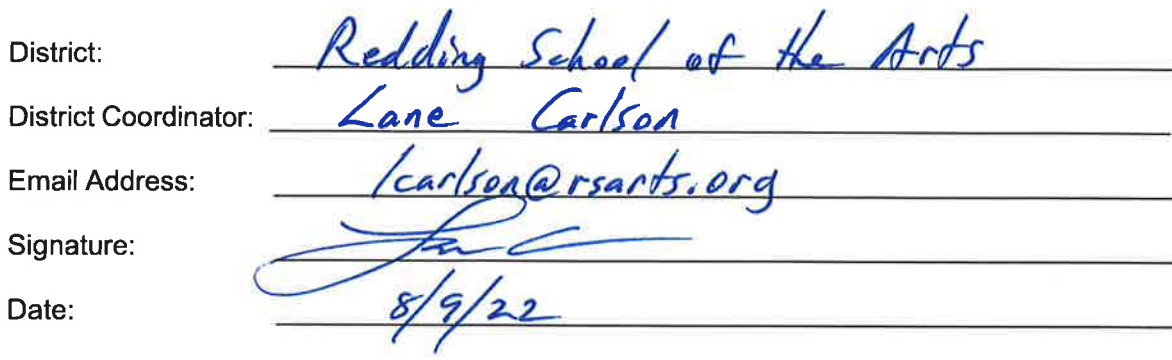 District: Redding School of the Arts
District Coordinator: Lane Carlson
Email Address: lcarlson@rsarts.org
Signature:
Date: 8/9/22